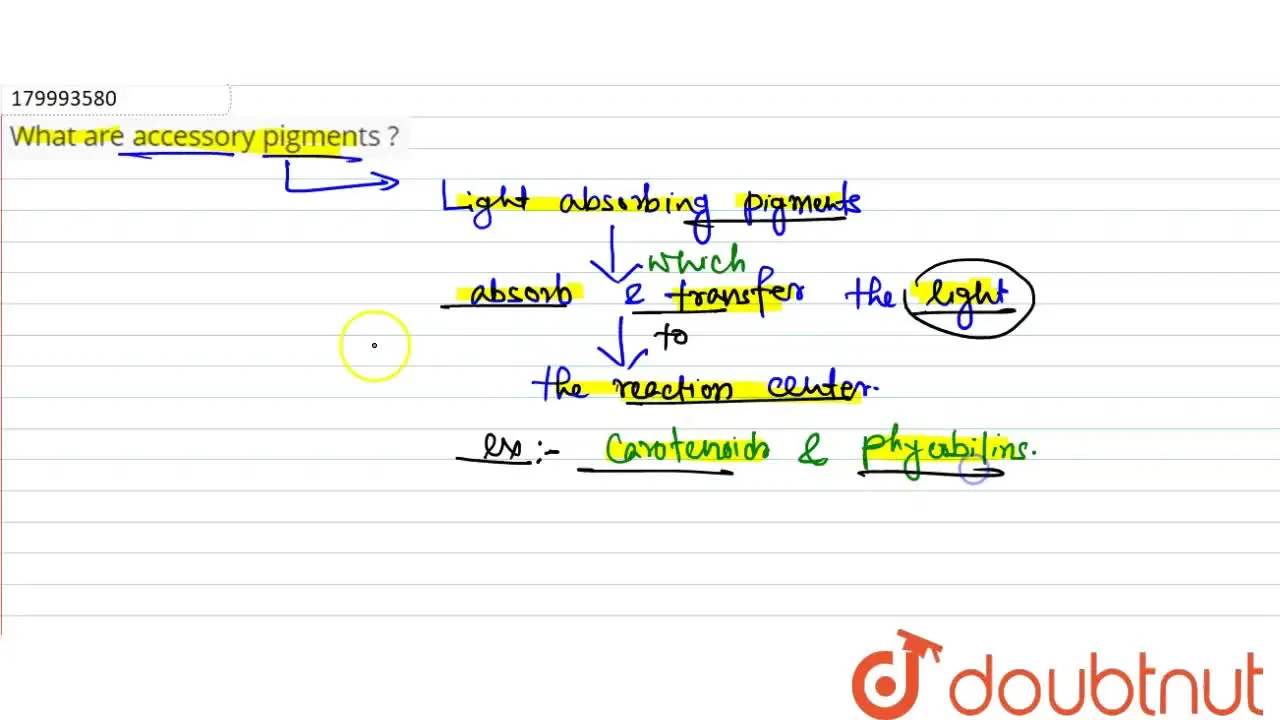 179993580
What are accessory pigments ?
Light absorbing pigments
which
absorb & transfer the light
to
the reaction center.
ex:- Carotenoids & Phycobilins.
doubtnut